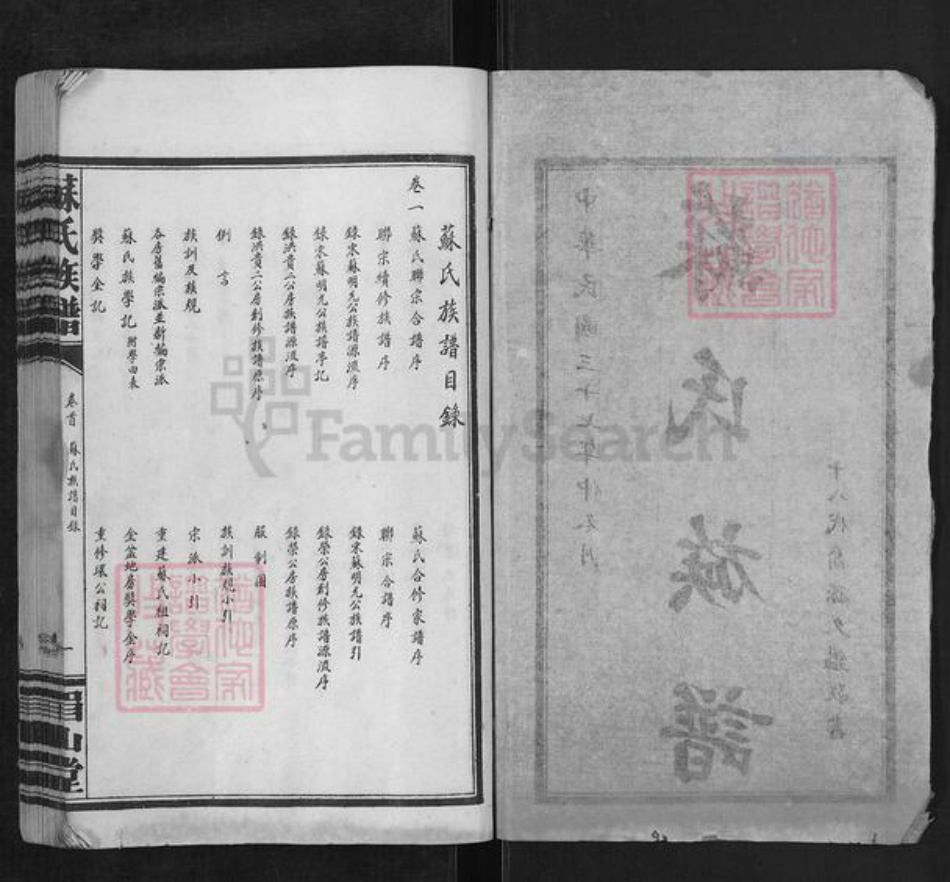 蘇氏族譜
中華民國三十七年仲冬月
十八代
蘇氏族譜目錄
卷一
蘇氏聯宗合譜序
蘇氏合修家譜序
聯宗續修族譜序
聯宗合譜序
錄宋蘇明允公族譜源流序
錄宋蘇明允公族譜引
錄宋蘇明允公族譜亭記
錄榮公房創修族譜源流序
錄洪貴二公房族譜源流序
錄榮公房族譜原序
錄洪貴二公房創修族譜原序
服制圖
例言
族訓族規小引
族訓及族規
宗派小引
各房舊編宗派並新編宗派
重建蘇氏祖祠記
蘇氏族學記 附學田表
金盆地房奬學金序
奬學金記
重修環公祠記
蘇氏族譜
卷首
蘇氏族譜目錄
一
眉山堂
FamilySearch